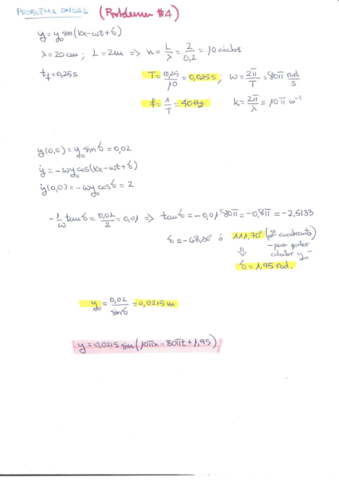 PROBLEMA ONDAS (Problema #4)
y = y₀ sin(kx-ωt+δ)
λ = 20 cm ; L = 2m ⇒ n = L/λ = 2/0,2 = 10 ciclos
t_f = 0,25s T = 0,25/10 = 0,025s ; ω = 2π/T = 80π rad/s
f = 1/T = 40Hz k = 2π/λ = 10π m⁻¹
y(0,0) = y₀ sin δ = 0,02
ẏ = -ωy₀ cos(kx-ωt+δ)
ẏ(0,0) = -ωy₀ cos δ = 2
-1/ω tan δ = 0,02/2 = 0,01 ⇒ tan δ = -0,01·80π = -0,8π = -2,5133
δ = -68,30° ó 111,70° (2º cuadrante)
calcular y₀
⇓
δ = 1,95 rad.
y₀ = 0,02/sin δ = 0,0215 m
y = 0,0215 sin(10πx - 80πt + 1,95)